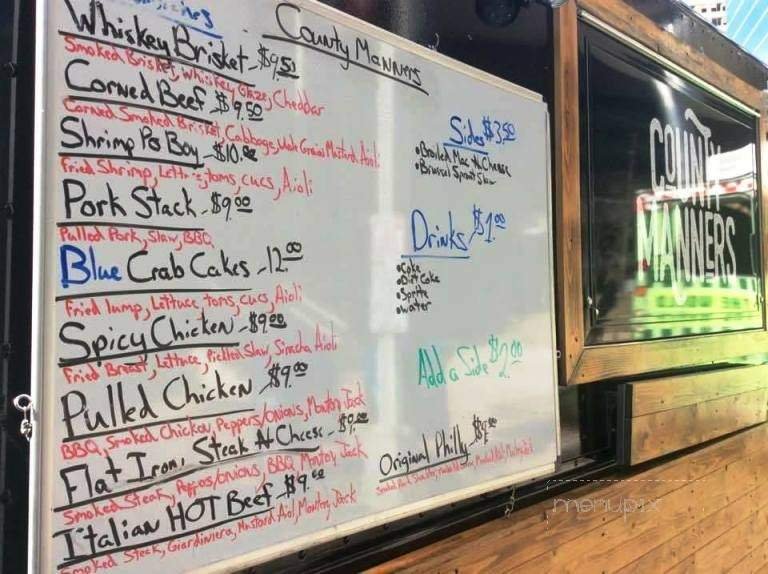 County Manners
Whiskey Brisket - $9.50
Smoked Brisket, Whiskey Glaze, Cheddar
Corned Beef $9.50
Corned Smoked Brisket, Cabbage, Whole Grain Mustard Aioli
Shrimp Po Boy - $10.00
Fried Shrimp, Lettuce, toms, cucs, Aioli
Pork Stack - $9.00
Pulled Pork, Slaw, BBQ
Blue Crab Cakes - 12.00
fried lump, Lettuce toms, cucs, Aioli
Spicy Chicken - $9.00
Fried Breast, Lettuce, Pickled Slaw, Siracha Aioli
Pulled Chicken - $9.00
BBQ, Smoked Chicken, Peppers/onions, Monterey Jack
Flat Iron, Steak N Cheese - $9.00
Smoked Steak, Peppers/onions, BBQ Monterey Jack
Italian HOT Beef - $9.00
Smoked Steak, Giardiniera, Mustard Aioli, Monterey Jack
Sides $3.50
•Broiled Mac N Cheese
•Brussel Sprout Slaw
Drinks - $1.00
•Coke
•Diet Coke
•Sprite
•water
Add a Side $2.00
Original Philly - $9.00
COUNTY
MANNERS
menupix